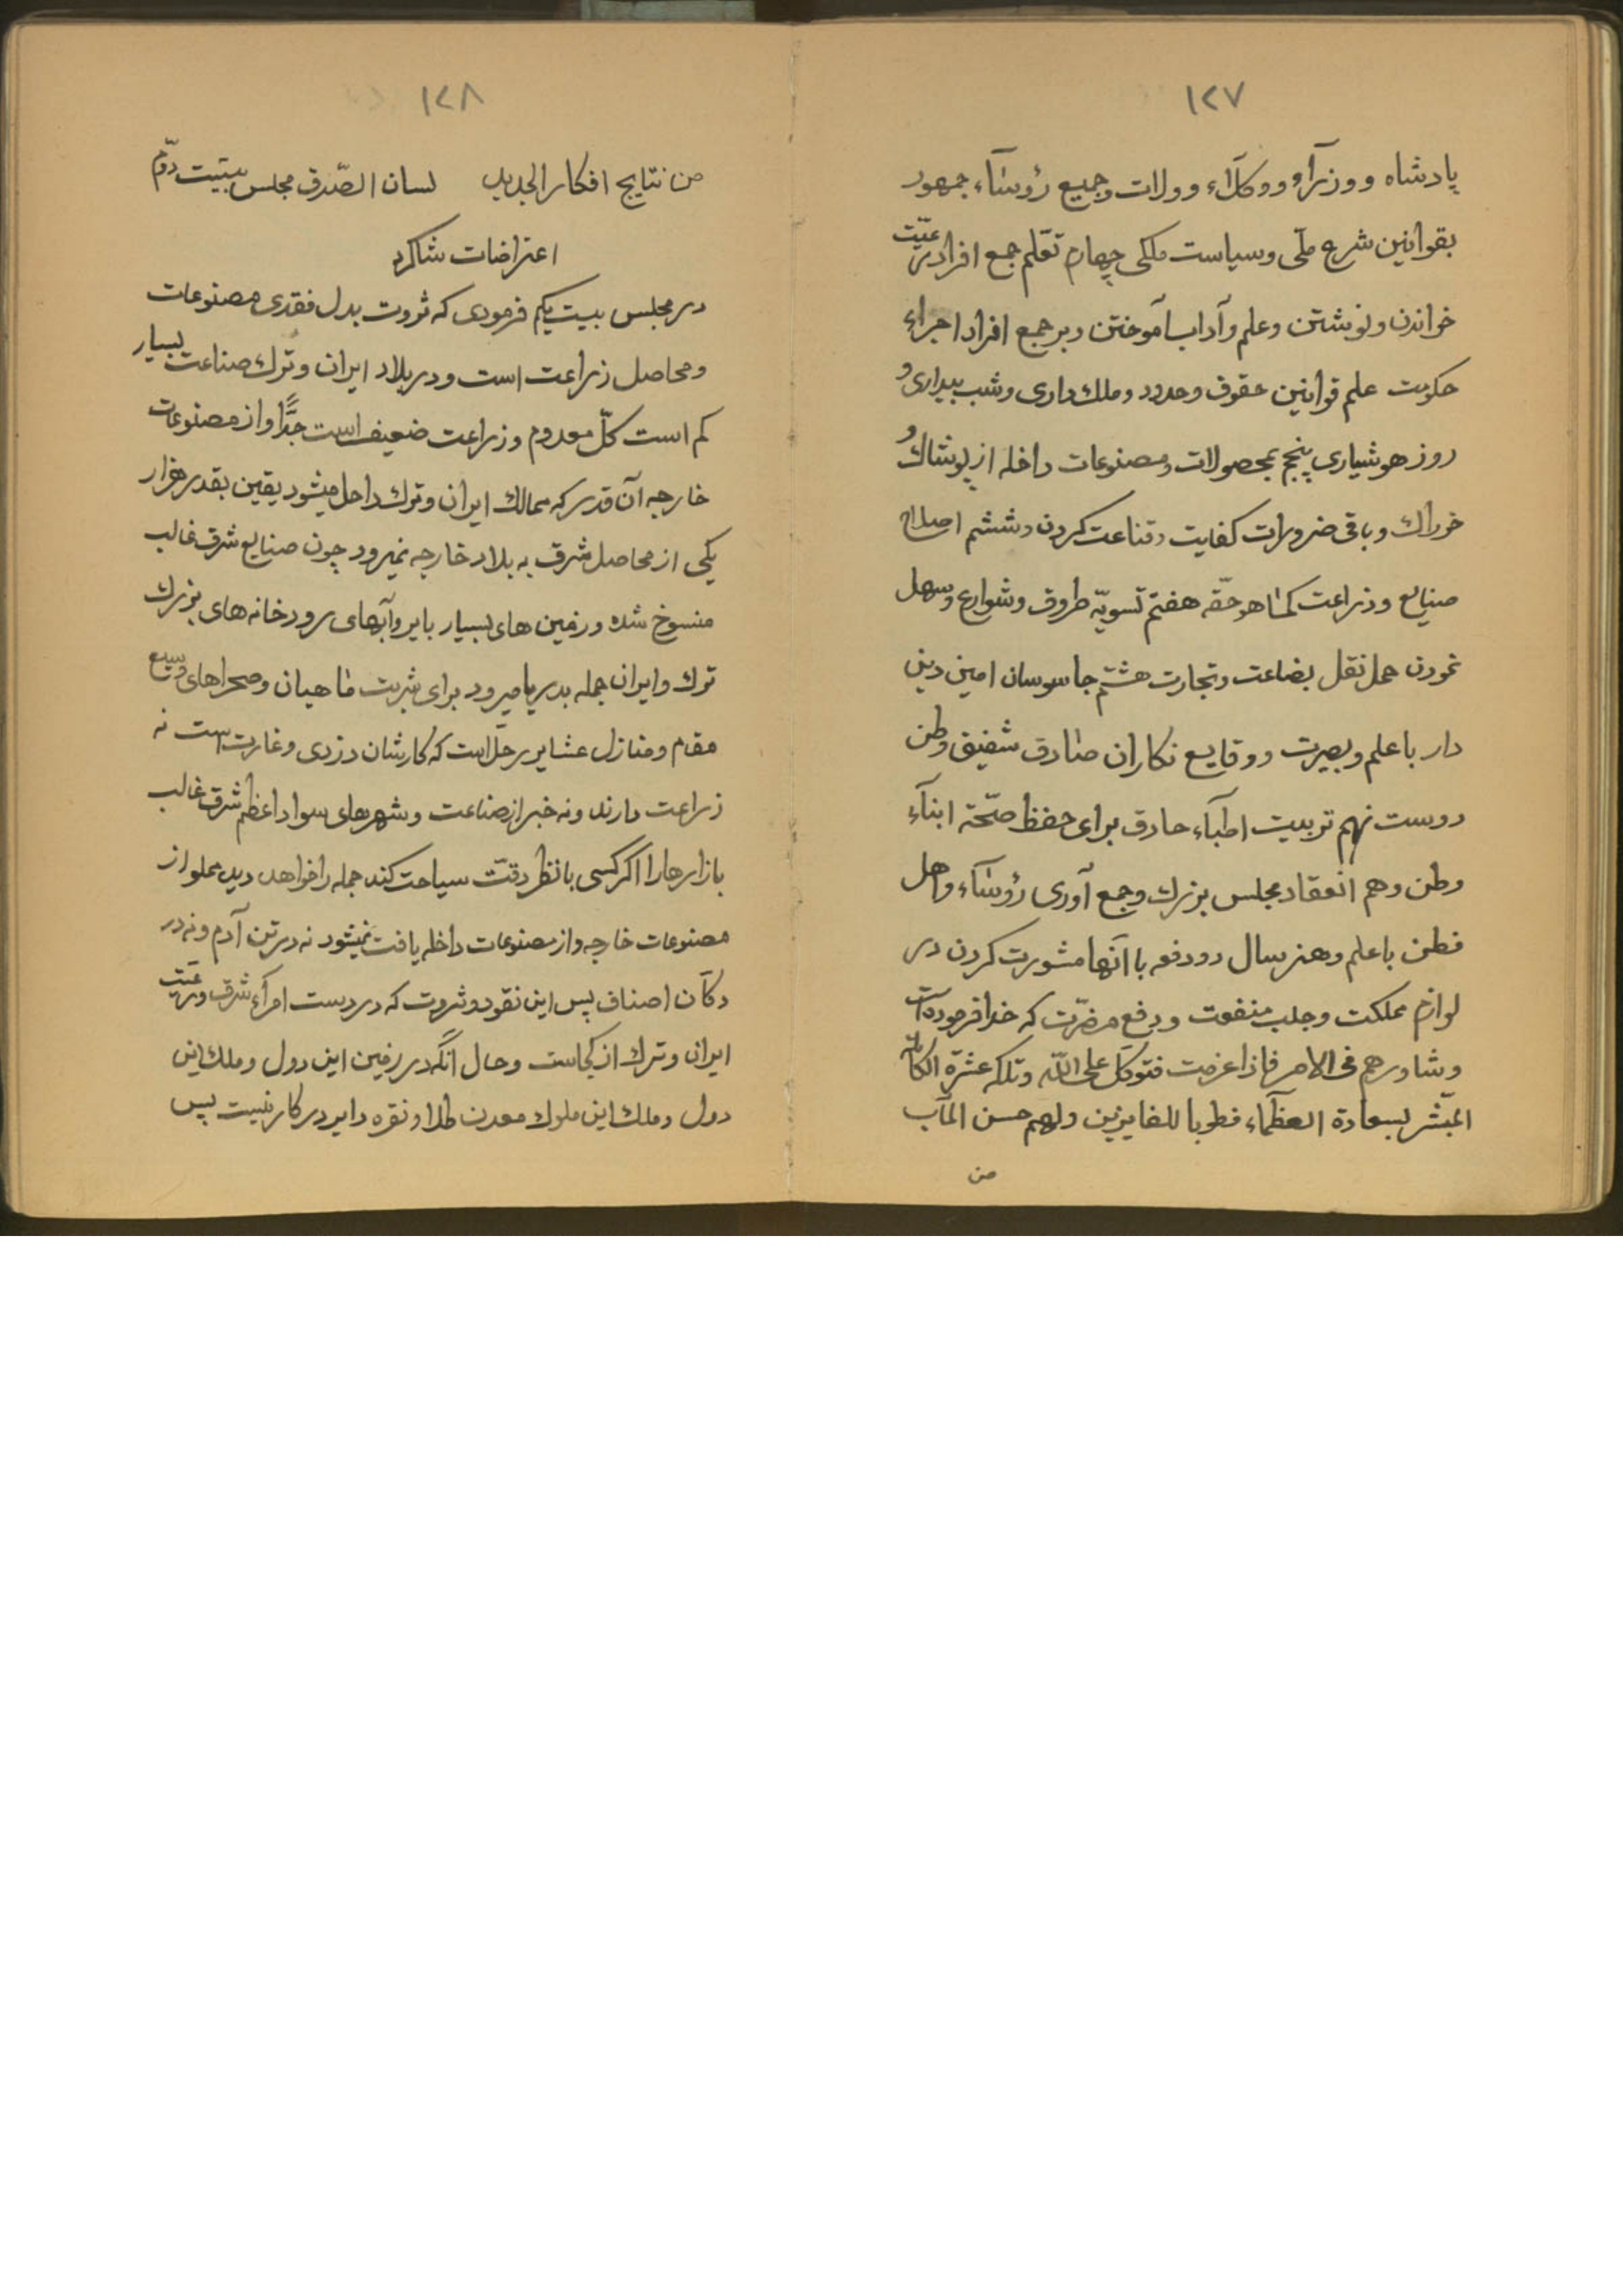 ۱۲۷
پادشاه و وزرآء و وکلآء و ولات و جمیع رؤسآء جمهور
بقوانین شرع ملّی و سیاست ملکی چهارم تعلّم جمع افراد رعیّت
خواندن و نوشتن و علم و آداب آموختن و بر جمع افراد اجراء
حکومت علم قوانین حقوق و حدود و ملك داری و شب بیداری و
روز هوشیاری پنجم بمحصولات و مصنوعات داخله از پوشاك و
خوراك و باقی ضرورات کفایت و قناعت کردن و ششم اصلاح
صنایع و زراعت کما هو حقّه هفتم تسویهٔ طروق و شوارع و سهل
نمودن حمل نقل بضاعت و تجارت هشتم جاسوسان امین دین
دار با علم و بصیرت و وقایع نکاران صادق شفیق وطن
دوست نهم تربیت اطبآء حاذق برای حفظ صحّة ابنآء
وطن و هم انعقاد مجلس بزرك و جمع آوری رؤسآء و اهل
فطن با علم و هنر سال دو دفعه با آنها مشورت کردن در
لوازم مملکت و جلب منفعت و دفع مضرّت که خدا فرموده است
و شاورهم فی الامر فاذا عزمت فتوکّل علی اللّه و تلکه عشرة الکاملة
المبشّر بسعادة العظماء فطوبا للفایزین ولهم حسن المآب
من
۱۲۸
من نتایج افکار الجدید لسان الصّدق مجلس بیست دوّم
اعتراضات شاکرد
در مجلس بیست یکم فرمودی که ثروت بدل فقدی مصنوعات
و محاصل زراعت است و در بلاد ایران و ترك صناعت بسیار
کم است کلّ معدوم و زراعت ضعیف است جدًّا و از مصنوعات
خارجه آن قدر که بممالك ایران و ترك داخل میشود یقین بقدر هزار
یکی از محاصل شرق به بلاد خارجه نمیرود چون صنایع شرق غالب
منسوخ شده و زمین های بسیار بایر و آبهای رودخانه های بزرك
ترك و ایران جمله بدریا میرود برای شربت ماهیان و صحراهای وسیع
مقام و منازل عشایر رحّل است که کارشان دزدی و غارت است نه
زراعت دارند و نه خبر از صناعت و شهرهای سواد اعظم شرق غالب
بازارها را اکر کسی با نظر دقّت سیاحت کند جمله را خواهد دید مملو از
مصنوعات خارجه و از مصنوعات داخله یافت نمیشود نه در تن آدم و نه در
دکّان اصناف پس این نقود و ثروت که در دست امرآء شرق و رعیّت
ایران و ترك از کجاست و حال آنکه در زمین این دول و ملك این
دول و ملك این ملوك معدن طلا و نقره دایر در کار نیست پس